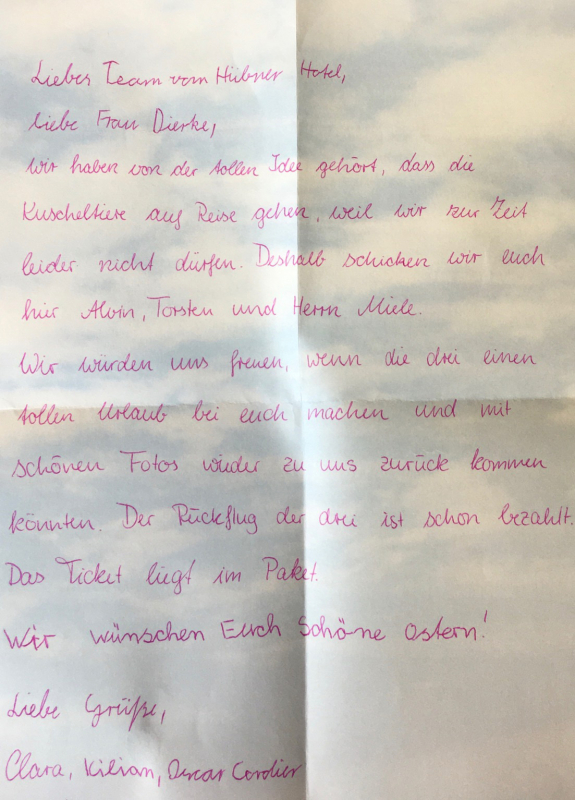 Liebes Team vom Hübner Hotel,
liebe Frau Dierke,
wir haben von der tollen Idee gehört, dass die
Kuscheltiere auf Reise gehen, weil wir zur Zeit
leider nicht dürfen. Deshalb schicken wir euch
hier Alvin, Torsten und Herrn Miele.
Wir würden uns freuen, wenn die drei einen
tollen Urlaub bei euch machen und mit
schönen Fotos wieder zu uns zurück kommen
könnten. Der Rückflug der drei ist schon bezahlt.
Das Ticket liegt im Paket.
Wir wünschen Euch Schöne Ostern!
Liebe Grüße,
Clara, Kilian, Oscar Cordier